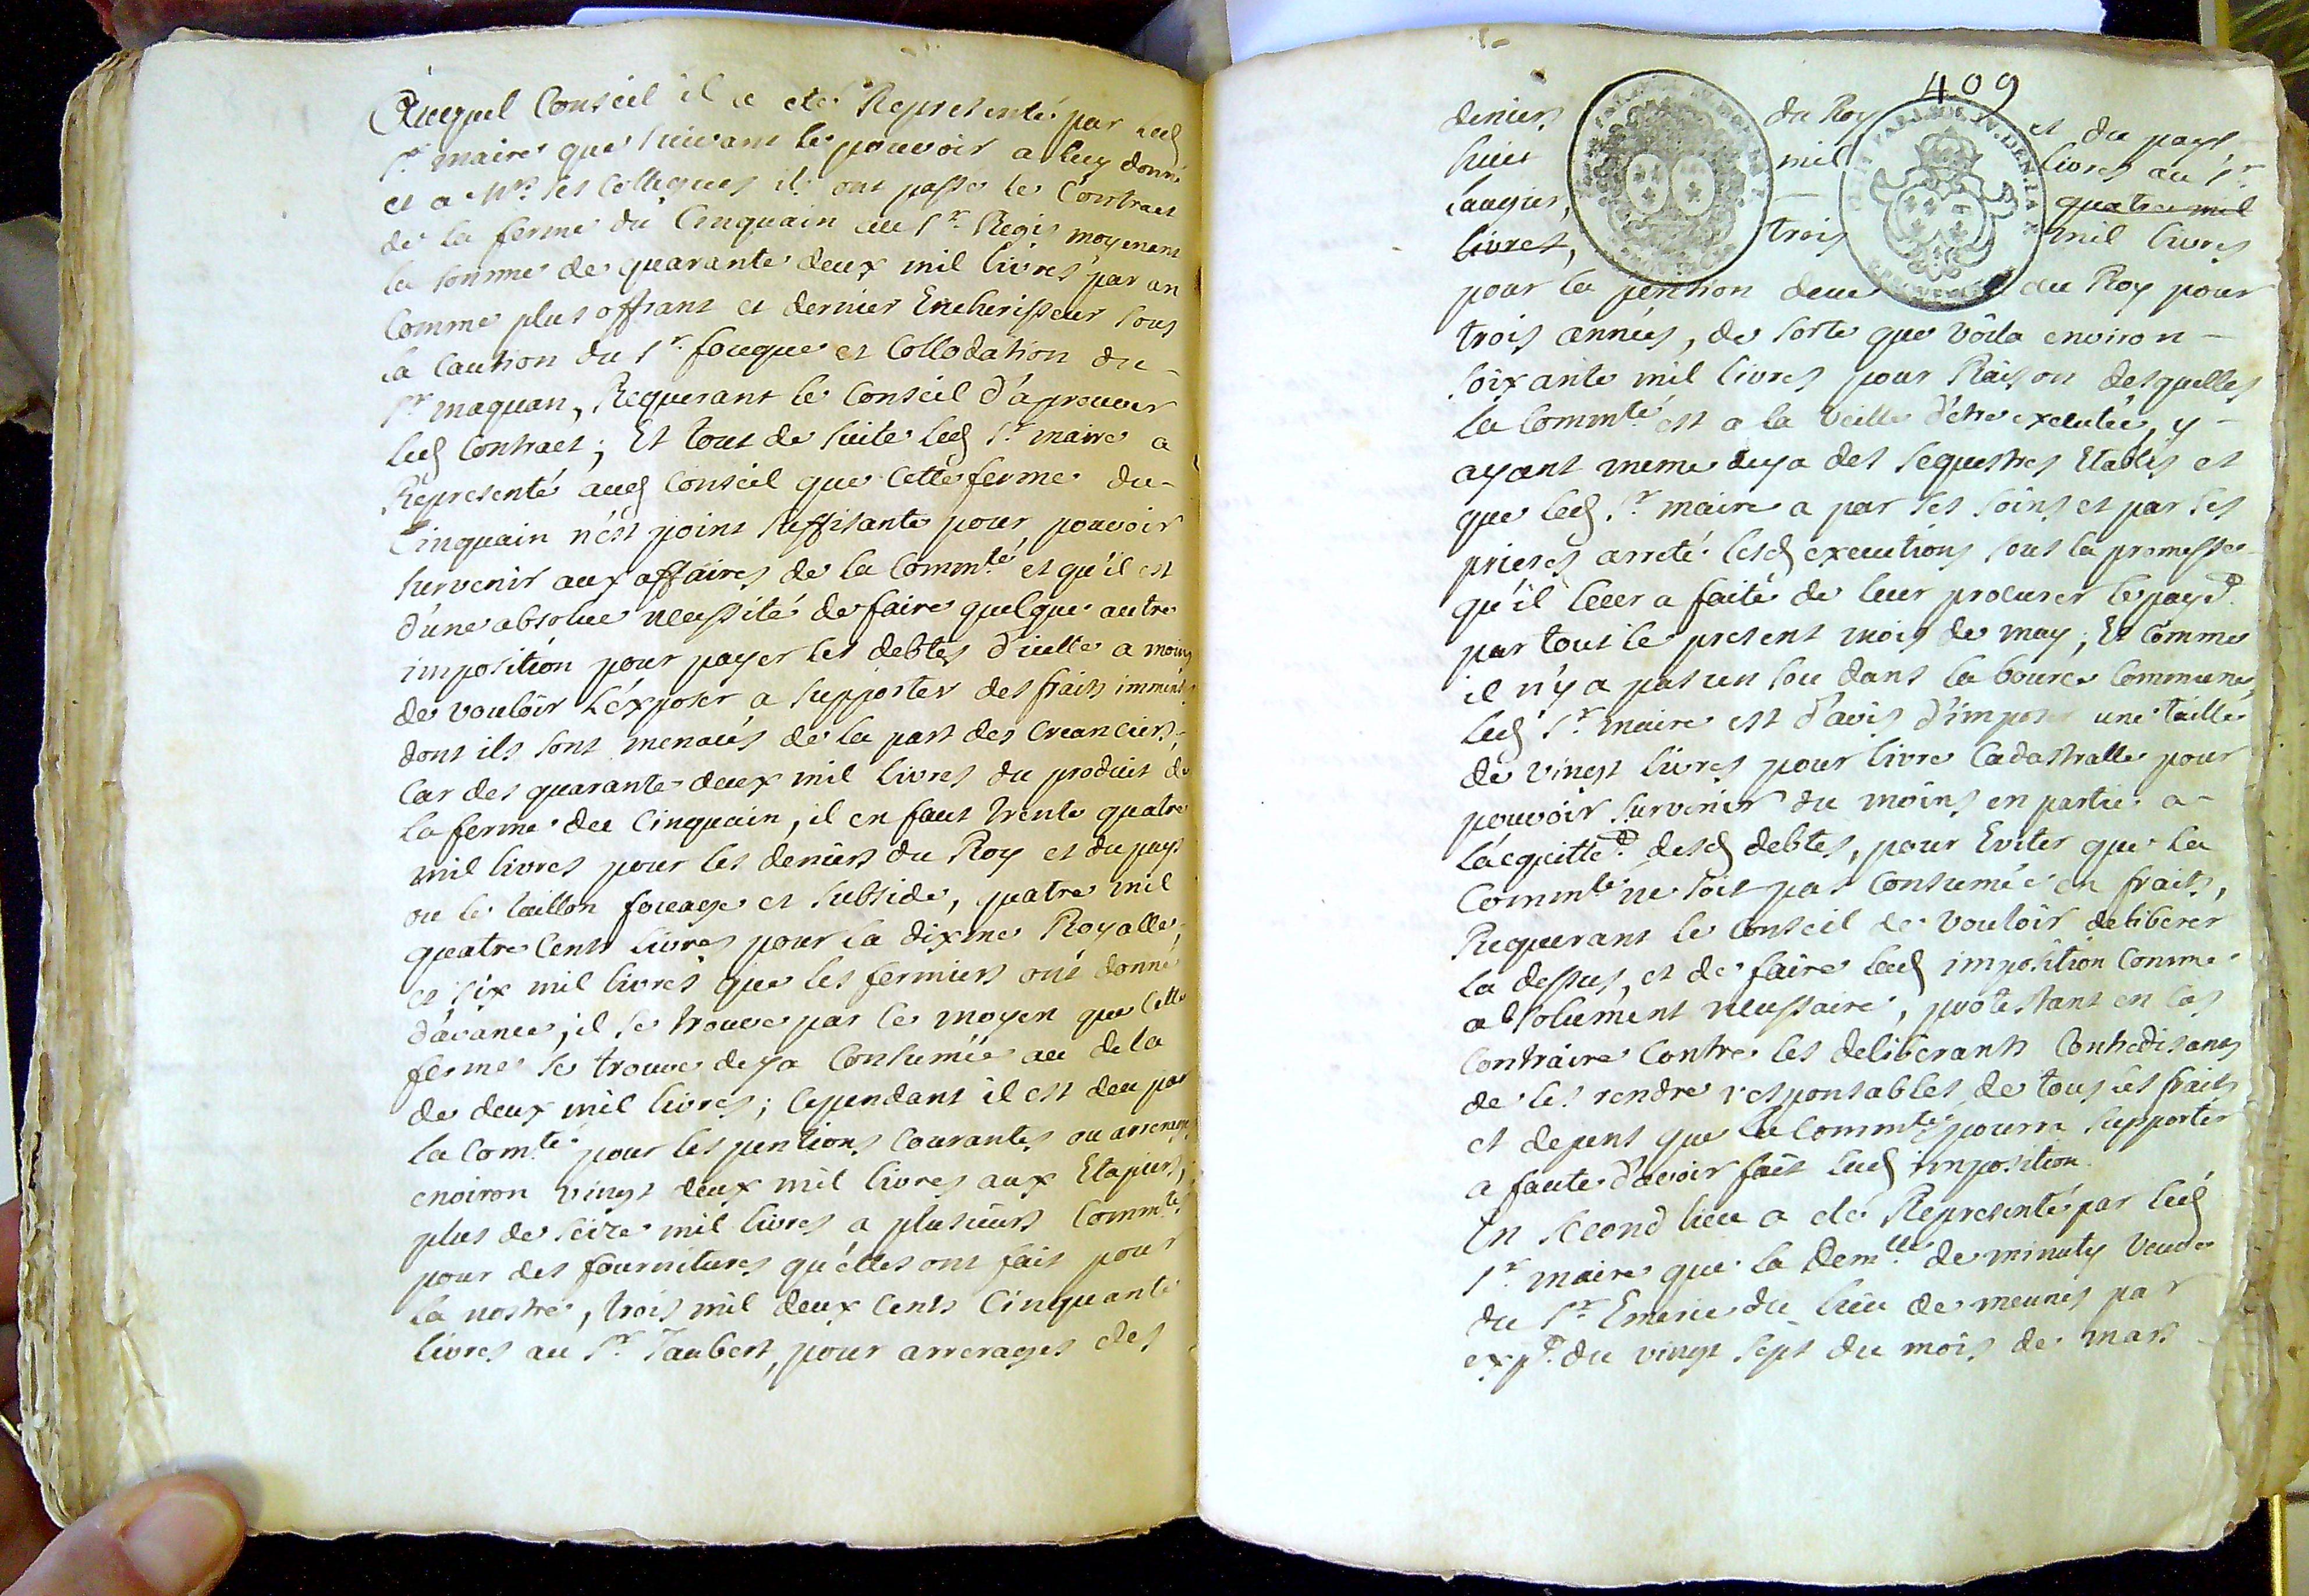 Auquel Conseil il a eté Representé par led
Sr. maire que suivant le pouvoir a luy donné
et a Mrs. ses Collegues ils ont passé le Contract
de la ferme du Cinquain au Sr. Regis moyenent
la somme de quarante deux mil livres par an
Comme plus offrant et dernier Encherisseur sous
la Caution du Sr. fouque et Collodation du
Sr. maquan, Requerant le Conseil d'aprouver
led Contract; Et tout de suite led Sr. maire a
Representé aud Conseil que Cette ferme du
Cinquain n'est point suffisante pour pouvoir
survenir aux affaires de la Commté et qu'il est
d'une absolue necessité de faire quelque autre
imposition pour payer les debtes d'icelle a moins
de vouloir s'exposer a supporter des frais imminents
dont ils sont menacés de la part des Creanciers,
Car des quarante deux mil livres du produit de
la ferme du Cinquain, il en faut trente quatre
mil livres pour les deniers du Roy et du pays
ou le taillon fouage et subside, quatre mil
quatre Cents livres pour la dixme Royalle,
et six mil livres que les fermiers ont donné
d'avance; il se trouve par ce moyen que Cette
ferme se trouve deja Consumée au dela
de deux mil livres; Cependant il est deu par
la Comté pour les pentions Courantes ou arrerages
environ vingt deux mil livres aux Etapiers,
plus de seize mil livres a plusieurs Commtés
pour des fournitures qu'elles ont fait pour
la nostre, trois mil deux Cents Cinquante
livres au Sr. Jaubert, pour arrerages des
409
deniers du Roy et du pays
huit mil livres au Sr.
Laugier, quatre mil
livres, trois mil livres
pour la pention deue au Roy pour
trois années, de sorte que voila environ
soixante mil livres pour Raison desquelles
la Commté est a la veille d'etre executée, y
ayant meme deja des sequestres Etablis et
que led Sr. maire a par ses soins et par ses
prieres arreté lesd executions sous la promesse
qu'il leur a faite de leur procurer le payt.
par tout le present mois de may; Et Comme
il n'y a pas un sou dans la bource Commune,
led Sr. maire est d'avis d'imposer une taille
de vingt livres pour livre Cadastralle pour
pouvoir survenir du moins en partie a
l'acquittet. desd debtes, pour Eviter que la
Commté ne soit pas Consumée en frais,
Requerant le Conseil de vouloir deliberer
la dessus, et de faire lad imposition Comme
absolument necessaire, protestant en Cas
Contraire Contre les deliberants Contredisans
de les rendre responsables de tous les frais
et depens que la Commté pourra supporter
a faute d'avoir fait lad imposition.
En second lieu a eté Representé par led
Sr. maire que la Demlle. de minuty veuve
du Sr. Emeric du lieu de meunes par
expt. du vingt sept du mois de mars